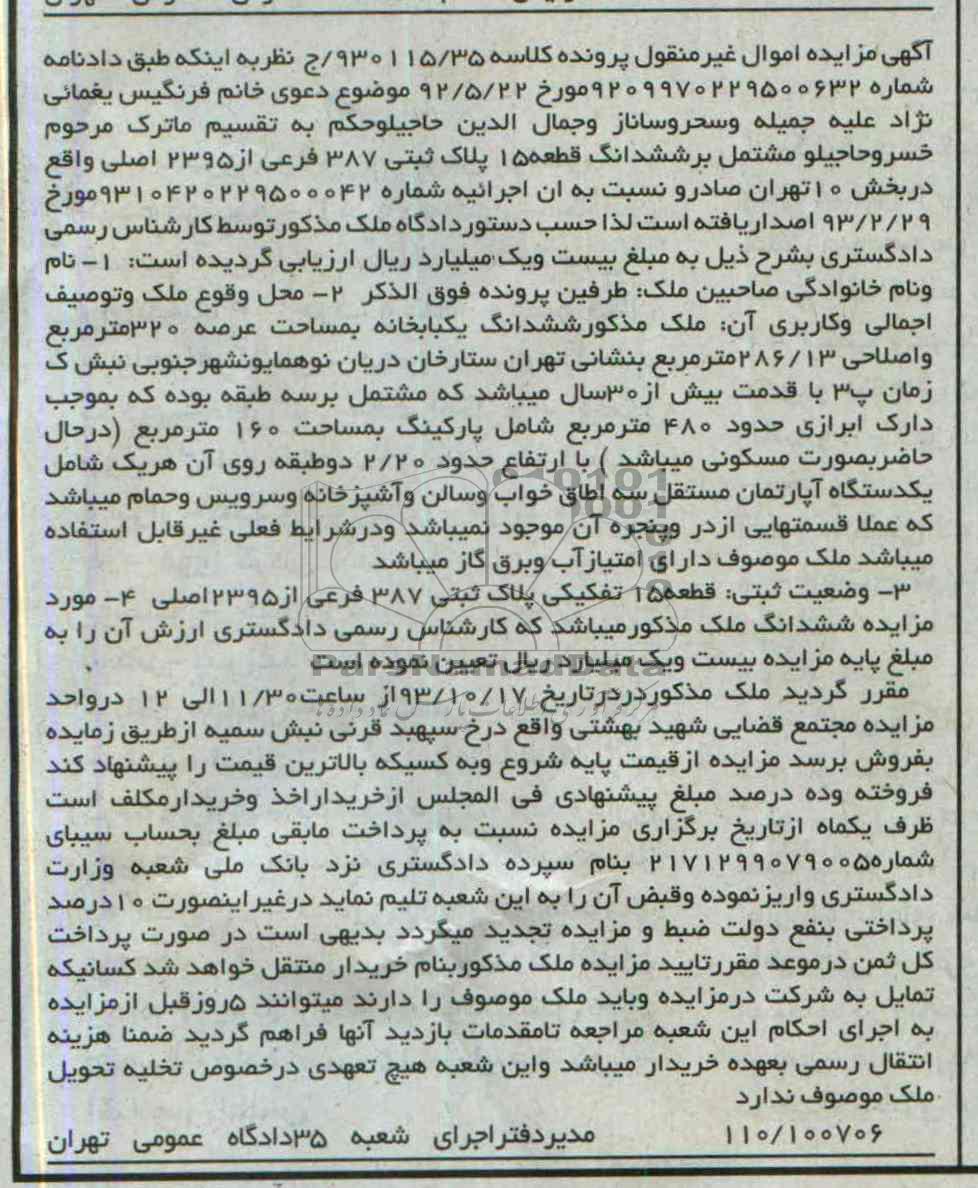 آگهی مزایده اموال غیرمنقول پرونده کلاسه ۹۳۰۱۱۵/۳۵/ج نظربه اینکه طبق دادنامه
شماره ۹۲۰۹۹۷۰۲۲۹۵۰۰۶۳۲مورخ ۹۲/۵/۲۲ موضوع دعوی خانم فرنگیس یغمائی
نژاد علیه جمیله وسحروساناز وجمال الدین حاجیلوحکم به تقسیم ماترک مرحوم
خسروحاجیلو مشتمل برششدانگ قطعه۱۵ پلاک ثبتی ۳۸۷ فرعی از۲۳۹۵ اصلی واقع
دربخش ۱۰تهران صادرو نسبت به ان اجرائیه شماره ۹۳۱۰۴۲۰۲۲۹۵۰۰۰۴۲مورخ
۹۳/۲/۲۹ اصداریافته است لذا حسب دستوردادگاه ملک مذکورتوسط کارشناس رسمی
دادگستری بشرح ذیل به مبلغ بیست ویک میلیارد ریال ارزیابی گردیده است: ۱- نام
ونام خانوادگی صاحبین ملک: طرفین پرونده فوق الذکر ۲- محل وقوع ملک وتوصیف
اجمالی وکاربری آن: ملک مذکورششدانگ یکبابخانه بمساحت عرصه ۳۲۰مترمربع
واصلاحی ۲۸۶/۱۳مترمربع بنشانی تهران ستارخان دریان نوهمایونشهرجنوبی نبش ک
زمان پ۳ با قدمت بیش از۳۰سال میباشد که مشتمل برسه طبقه بوده که بموجب
دارک ابرازی حدود ۴۸۰ مترمربع شامل پارکینگ بمساحت ۱۶۰ مترمربع (درحال
حاضربصورت مسکونی میباشد ) با ارتفاع حدود ۲/۲۰ دوطبقه روی آن هریک شامل
یکدستگاه آپارتمان مستقل سه اطاق خواب وسالن وآشپزخانه وسرویس وحمام میباشد
که عملا قسمتهایی ازدر وپنجره آن موجود نمیباشد ودرشرایط فعلی غیرقابل استفاده
میباشد ملک موصوف دارای امتیازآب وبرق گاز میباشد
۳- وضعیت ثبتی: قطعه۱۵ تفکیکی پلاک ثبتی ۳۸۷ فرعی از۲۳۹۵اصلی ۴- مورد
مزایده ششدانگ ملک مذکورمیباشد که کارشناس رسمی دادگستری ارزش آن را به
مبلغ پایه مزایده بیست ویک میلیارد ریال تعیین نموده است
ParsNamadData
مقرر گردید ملک مذکوردردرتاریخ ۹۳/۱۰/۱۷از ساعت۱۱/۳۰الی ۱۲ درواحد
مزایده مجتمع قضایی شهید بهشتی واقع درخ سپهبد قرنی نبش سمیه ازطریق زمایده
بفروش برسد مزایده ازقیمت پایه شروع وبه کسیکه بالاترین قیمت را پیشنهاد کند
فروخته وده درصد مبلغ پیشنهادی فی المجلس ازخریداراخذ وخریدارمکلف است
ظرف یکماه ازتاریخ برگزاری مزایده نسبت به پرداخت مابقی مبلغ بحساب سیبای
شماره۲۱۷۱۲۹۹۰۷۹۰۰۵ بنام سپرده دادگستری نزد بانک ملی شعبه وزارت
دادگستری واریزنموده وقبض آن را به این شعبه تلیم نماید درغیراینصورت ۱۰درصد
پرداختی بنفع دولت ضبط و مزایده تجدید میگردد بدیهی است در صورت پرداخت
کل ثمن درموعد مقررتایید مزایده ملک مذکوربنام خریدار منتقل خواهد شد کسانیکه
تمایل به شرکت درمزایده وباید ملک موصوف را دارند میتوانند ۵روزقبل ازمزایده
به اجرای احکام این شعبه مراجعه تامقدمات بازدید آنها فراهم گردید ضمنا هزینه
انتقال رسمی بعهده خریدار میباشد واین شعبه هیچ تعهدی درخصوص تخلیه تحویل
ملک موصوف ندارد
۱۱۰/۱۰۰۷۰۶ مدیردفتراجرای شعبه ۳۵دادگاه عمومی تهران